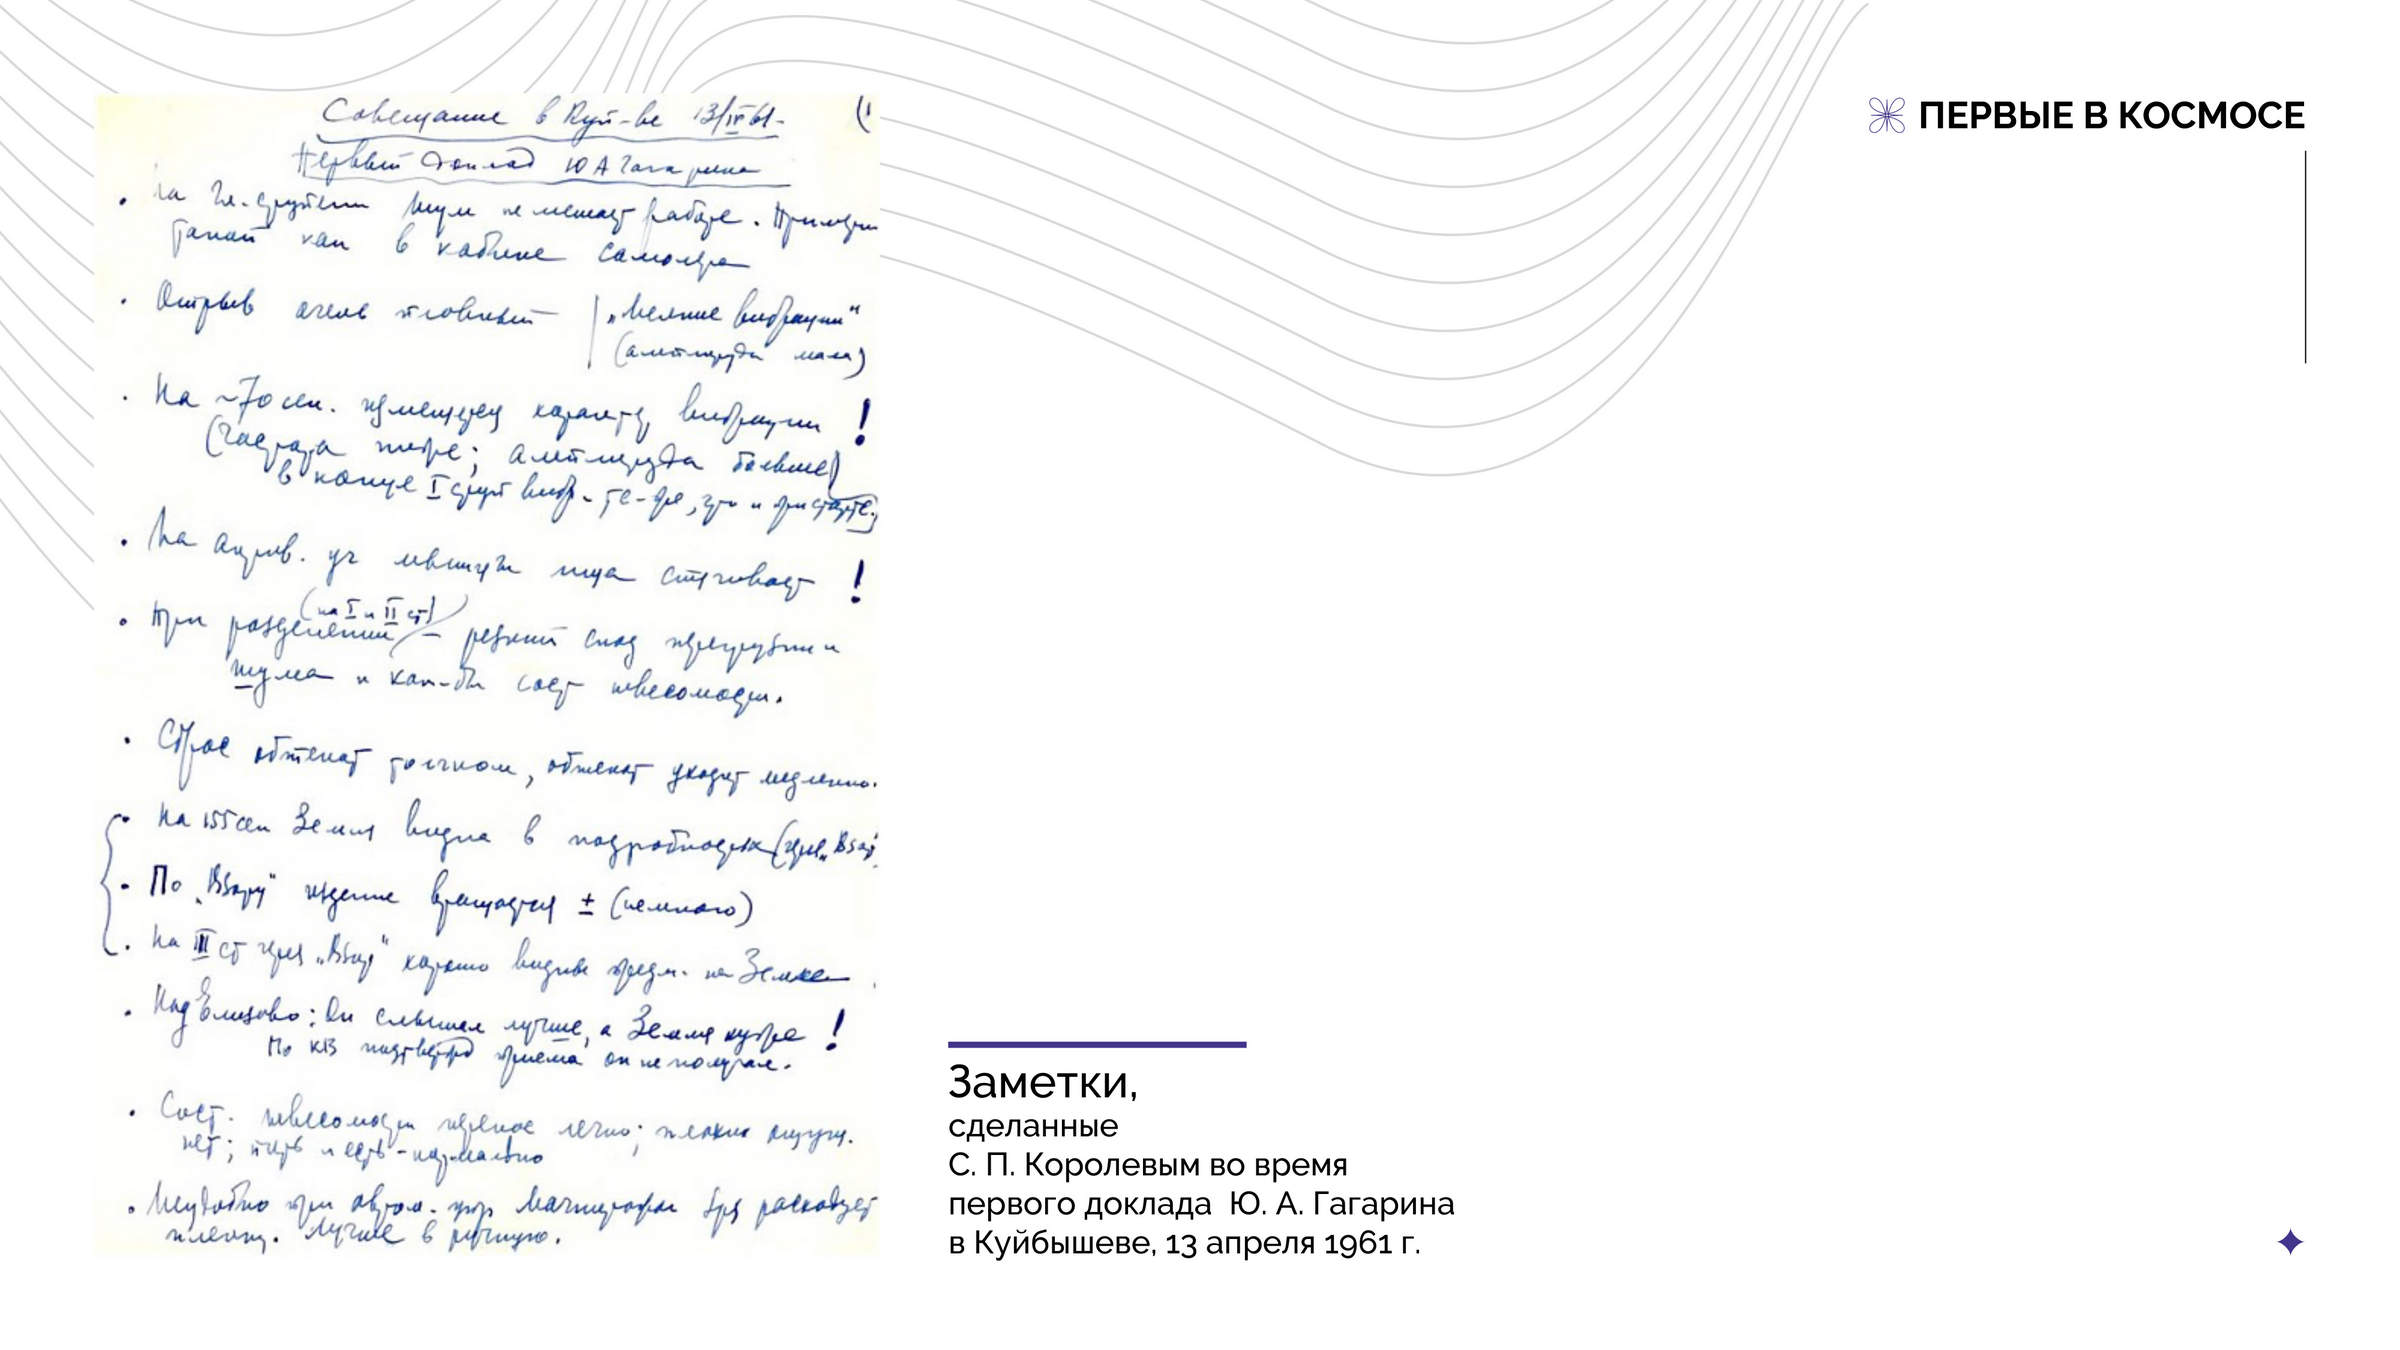 Совещание в Куй-ве 13/IV 61.
(1
Первый доклад Ю А Гагарина
• На 1й ступени шум не мешает работе. Примерно
такой как в кабине самолета
• Отрыв очень плавный | „Мелкие вибрации"
(амплитуда мала)
• На ~70 сек. изменяется характер вибрации !
(частота тоже; амплитуда больше)
в конце I ступ вибр. те-же, что и при старте.
• На активн. уч мышцы лица стягивает !
• При разделении (на I и II ст) – резкий спад перегрузки и
шума и как-бы сост невесомости.
• Сброс обтекат толчком, обтекат уходит медленно.
• На 155 сек Земля видна в подробностях (через „Взор"
• По „Взору" изделие вращается ± (немного)
• На III ст через „Взор" хорошо видны предм. на Земле
• Над Елизово: Он слышал лучше, а Земля хуже !
По КВ подтвержд приема он не получал.
• Сост. невесомости перенес легко; плохих ощущ.
нет; пить и есть – нормально
• Неудобно при автом. упр магнитофон зря расходует
пленку. Лучше в ручную.
ПЕРВЫЕ В КОСМОСЕ
Заметки,
сделанные
С. П. Королевым во время
первого доклада Ю. А. Гагарина
в Куйбышеве, 13 апреля 1961 г.